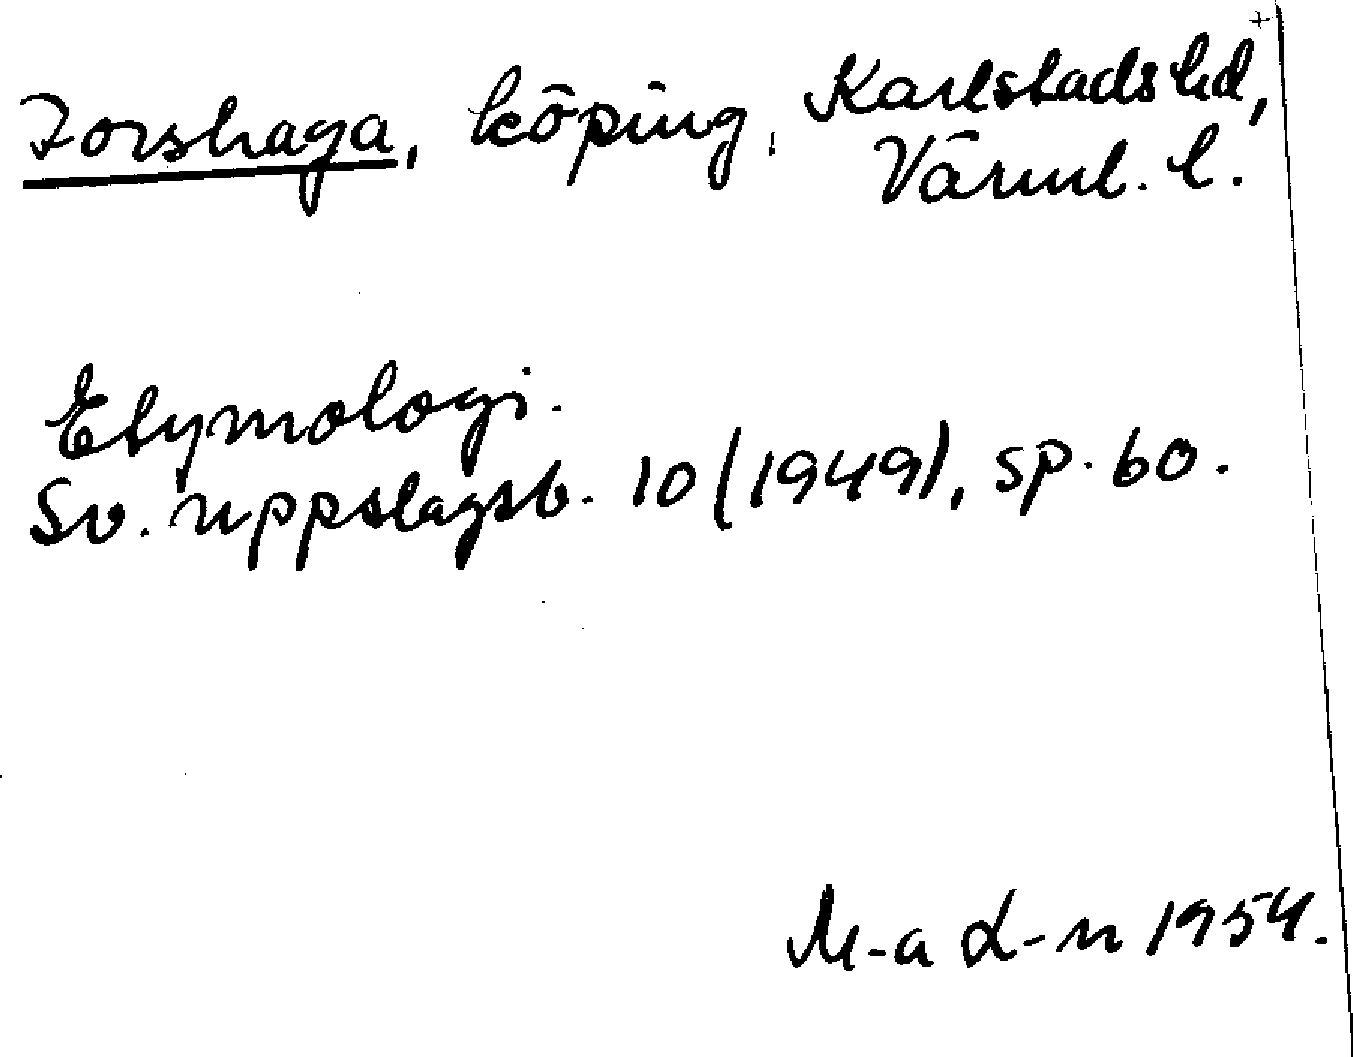 Forshaga, köping, Karlstads hd,
Värml. l.
Etymologi.
Sv. uppslagsb. 10 (1949), sp. 60.
M-a L-n 1954.